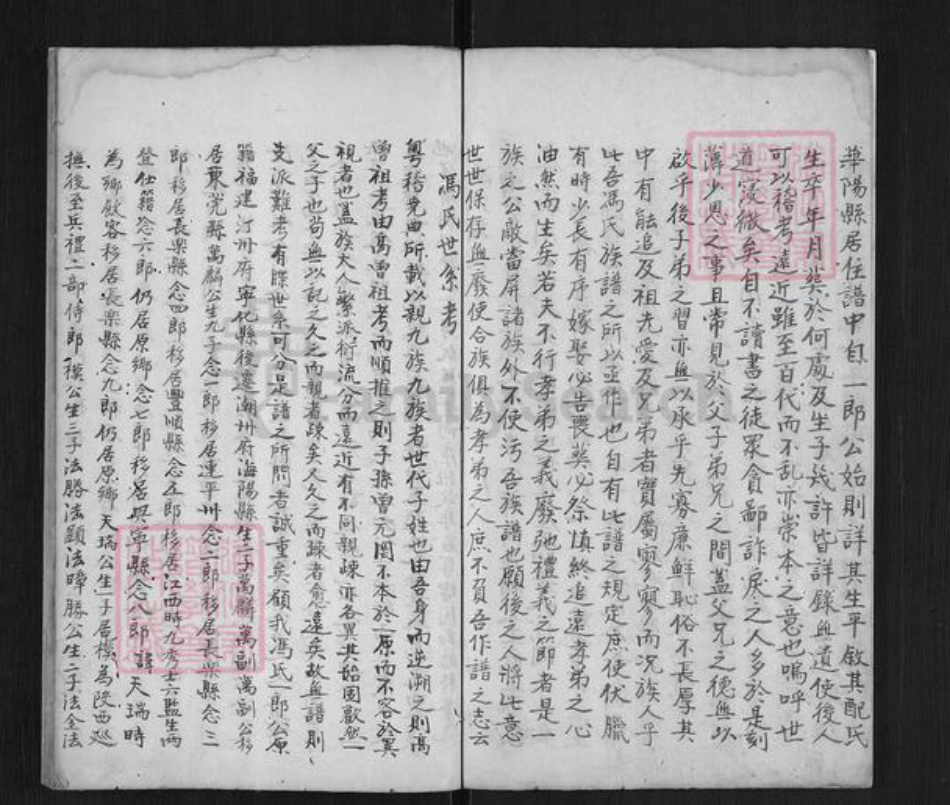 華陽縣居住譜中自一郎公始則詳其生平敘其配氏
生卒年月葬於何處及生子幾許皆詳錄無遺使後人
可以稽考遠近雖至百代而不乱亦崇本之意也嗚呼世
道寖微矣自不讀書之徒眾貪鄙詐戾之人多於是刻
薄少恩之事且常見於父子弟兄之間蓋父兄之德無以
啟乎後子弟之習亦無以承乎先寡廉鮮恥俗不長厚其
中有能追及祖先愛及兄弟者實屬寥寥而况族人乎
此吾馮氏族譜之所以亟作也自有此譜之規定庶使伏臘
有時少長有序嫁娶必告喪葬必祭慎終追遠孝弟之心
油然而生矣若夫不行孝弟之義廢弛禮義之節者是一
族之公敵當屏諸族外不使污吾族譜也願後之人將此意
世世保存無廢使合族俱為孝弟之人庶不負吾作譜之志云
馮氏世系考
粵稽堯典所載以親九族九族者世代子姓也由吾身而逆溯之則高
曾祖考由高曾祖考而順推之則子孫曾元罔不本於一原而不容於異
視者也蓋族大人繁派衍流分而遠近有不同親疎亦各異其始固歡然一
父之子也苟無以記之久之而親者疎矣又久之而疎者愈遠矣故無譜則
支派難考有牒世系可分是譜之所関者誠重矣顧我馮氏一郎公原
籍福建汀州府寧化縣後遷潮州府海陽縣生二子萬麟萬副萬副公移
居東莞縣萬麟公生九子念一郎移居連平州念二郎移居長樂縣念三
郎移居長樂縣念四郎移居豐順縣念五郎移居江西時九秀士六監生兩
登仕籍念六郎仍居原鄉念七郎移居興寧縣念八郎諱天瑞時
為鄉飲客移居長樂縣念九郎仍居原鄉天瑞公生一子居模為陝西巡
撫後至兵禮二部侍郎模公生三子法勝法顕法暲勝公生二子法全法